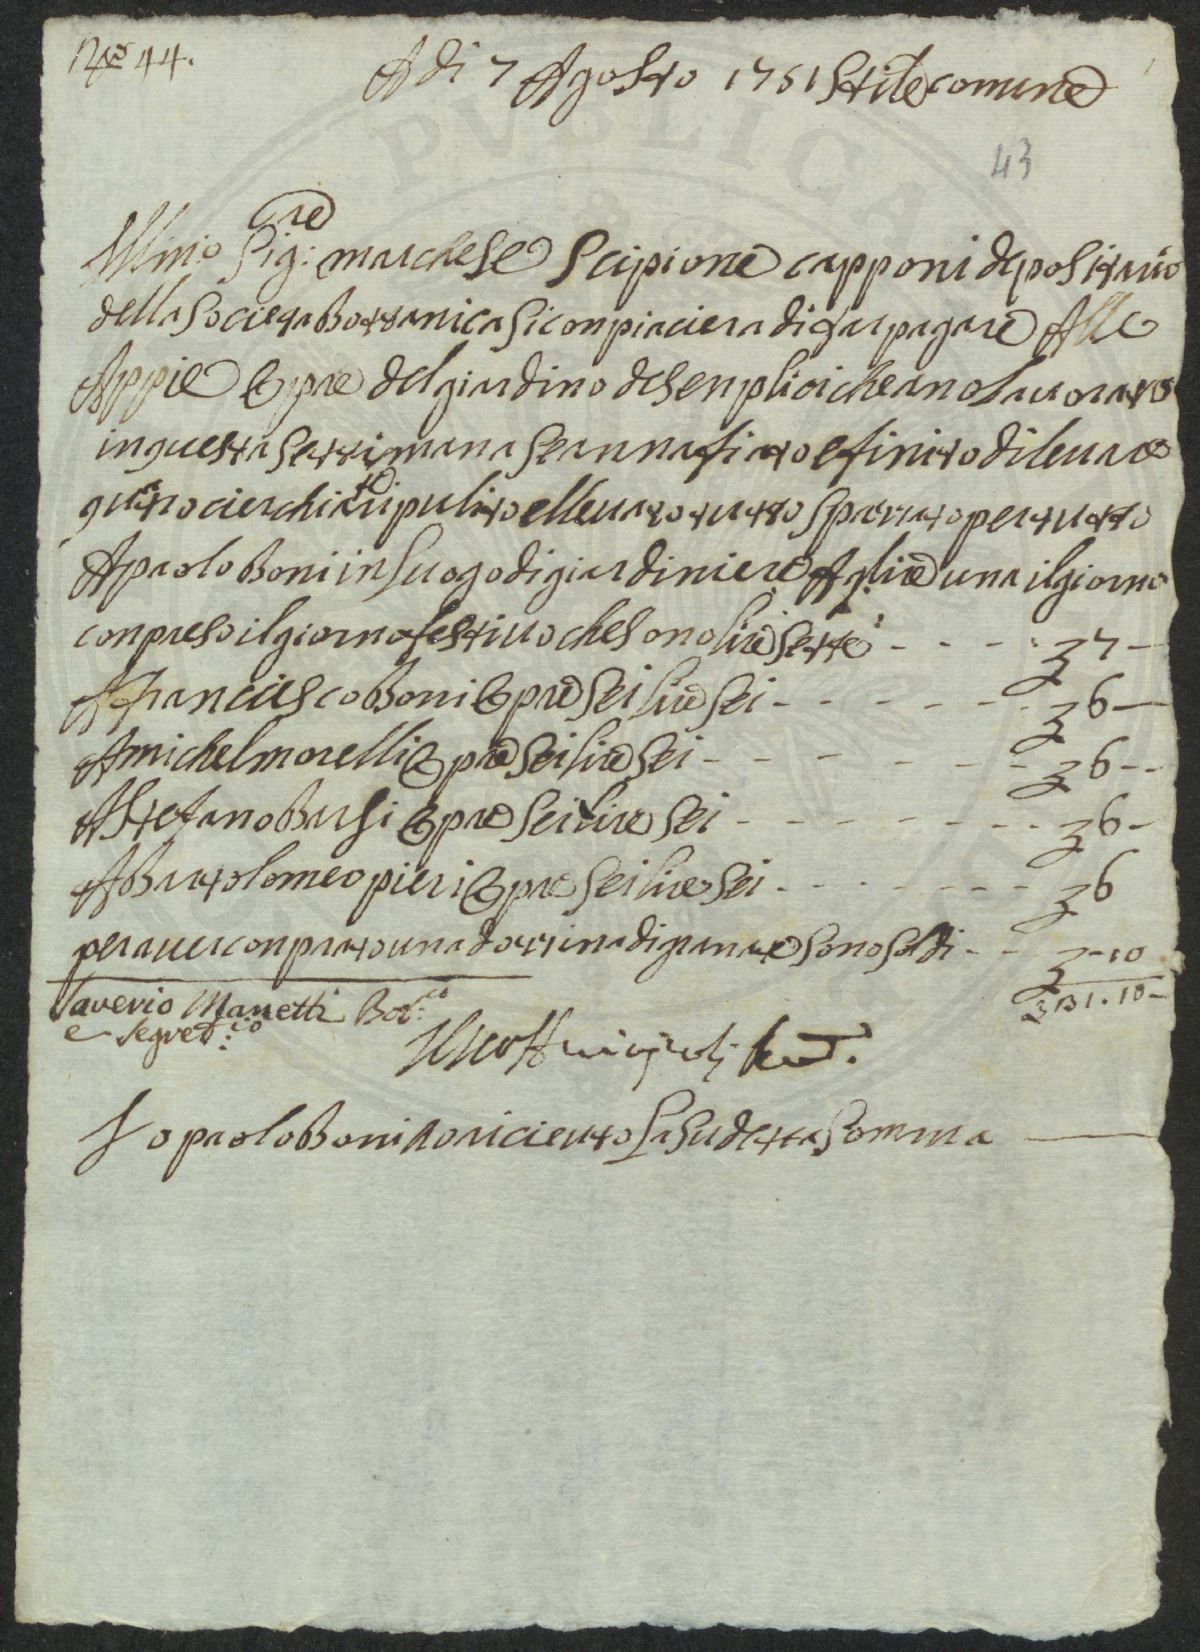 N.o 44.
A di 7 Agosto 1751 Stile comune
43
Illmo Sig:re marchese Scipione capponi depositario
della Societa Bottanica si conpiaciera di far pagare Alle
Appie Opre del giardino de senplici che ano lavorato
in questa settimana seannafiato e finito di levare
quatro cierchi ripulito ellevato tutto sparuto per tutto
A paolo Boni in luogo di giardiniere A lire una il giorno
conpreso il giorno festiuo che sono lire sette - - - - 7 -
A Franciesco Boni Opre sei lire sei - - - - - - 6 -
A michel morelli Opre sei lire sei - - - - - - 6 - -
A Stefano Bursi Opre sei lire sei - - - - - - - - 6 -
A Bartolomeo pieri Opre sei lire sei - - - - - - - 6
per aver conprato una dozzina di granate sono soldi - - - 10
Saverio Manetti Bot:co
e Segret:rio
31 . 10 -
Io paolo Boni o riceuto la sudetta Somma